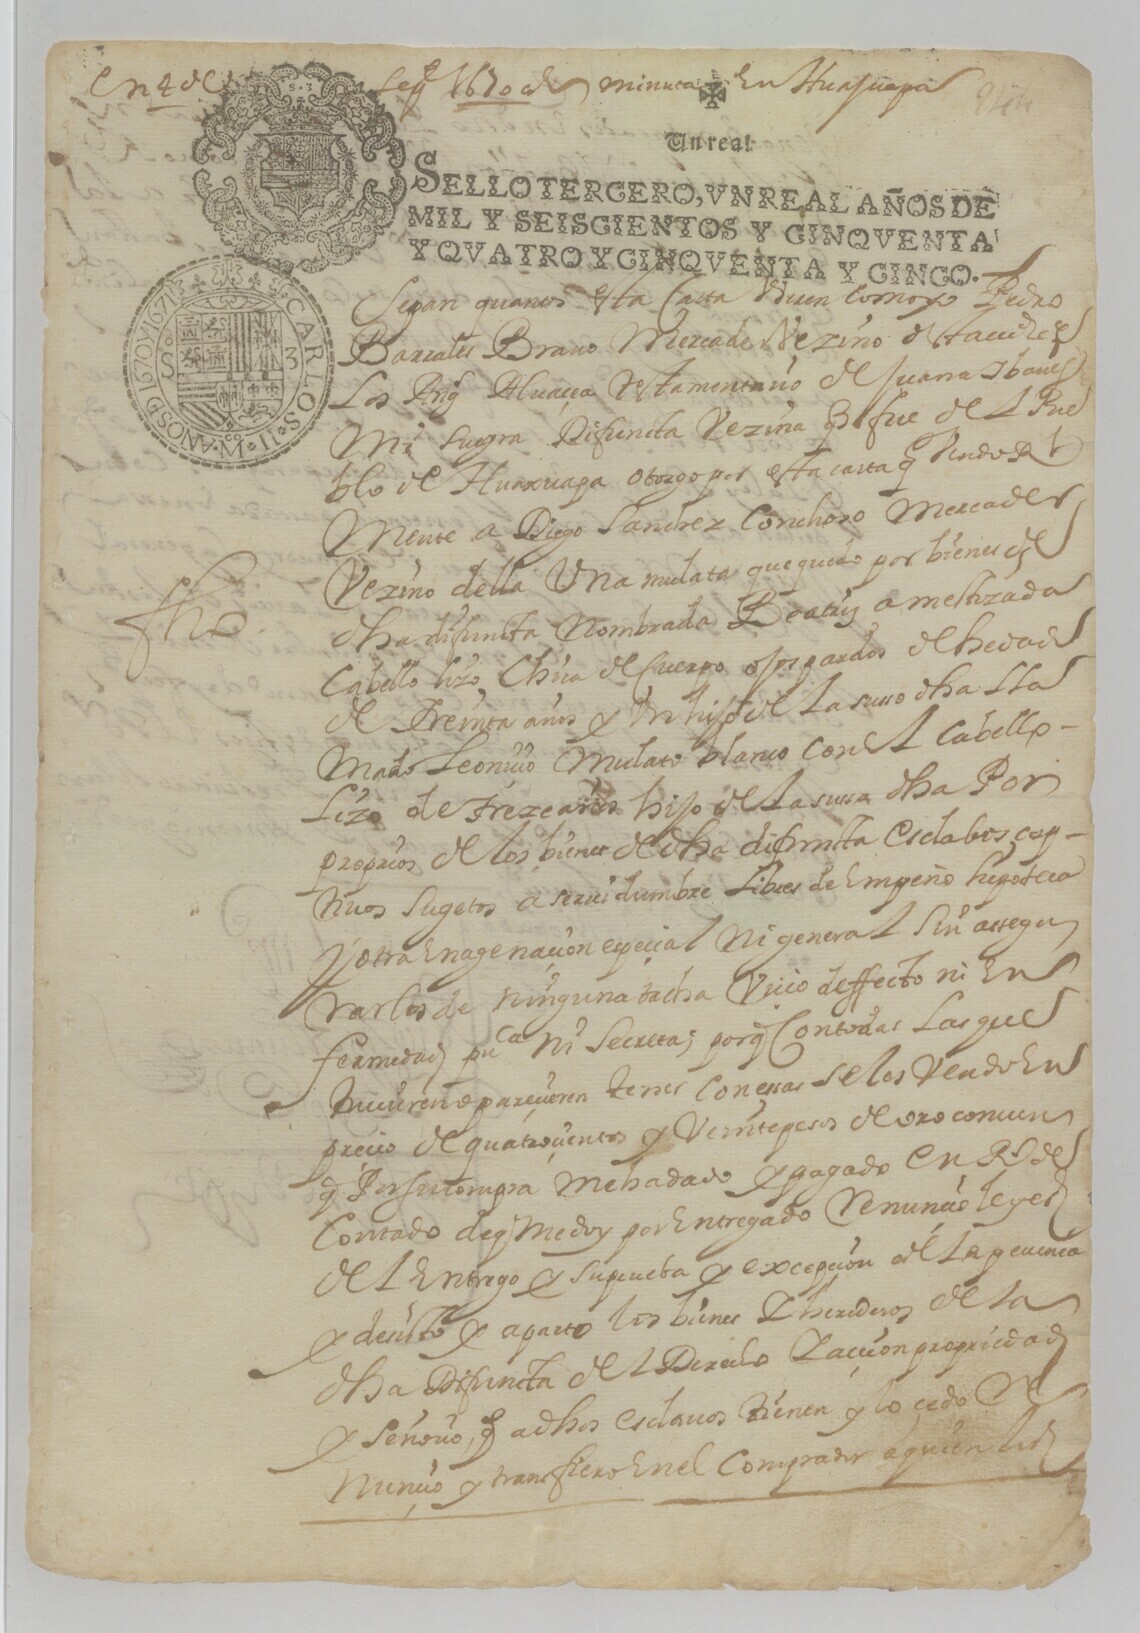 en 4 de seqe 1670 as minuta En Huajuapa
Un real
SELLO TERCERO, VN REAL AÑOS DE
MIL Y SEISCIENTOS Y CINQVENTA
Y QVATRO Y CINQVENTA Y CINCO.
CARLOS II
AÑOS D 1670 Y 1671
S 3
Sepan quantos esta Carta Vieren como yo Pedro
Barrales Brauo Mercader Vezino de
Los Ang Albacea testamentario de Juana Ibañes
Mi suegra Difuncta Vezina q fue del Pue
blo de Huaxuapa otorgo por esta carta q Vendo Rl
Mente a Diego Sanchez Conchoso Mercader
Vezino della Una mulata que quedo por bienes de
dha difuncta Nombrada Beatris amestizada
Cabello lizo Chica de Cuerpo ojos pardos de hedad
de Treinta años y Un hijo de la suso dha lla
Mado Leonicio Mulato blanco con el Cabello
Lizo de Treze años hijo de la susa dha Por
proprios de los bienes de dha difuncta Esclabos cap
tiuos Sugetos a seruidumbre Libres de Empeño hipoteca
Y otra Enagenacion especial Ni general Sin assegu
rarlos de ninguna tacha Vicio deffecto ni En
fermedad puca Ni Secreta; porq Con todas Las que
tuuieren o parecieren tener con essas se los Vendo En
precio de quatrocientos y Veinte pesos de oro comun
q Por su compra me ha dado y pagado en Rs de
Contado de q me doy por Entregado Renuncio leyes
del Entrego y su prueba y excepcion de la pecunia
y desisto y aparto los bienes y herederos de la
dha Difuncta del Derecho y accion propriedad
y Señorio, q a dhos esclauos tienen y lo cedo Re
Nuncio y transfiero En el Comprador a quien los
fho